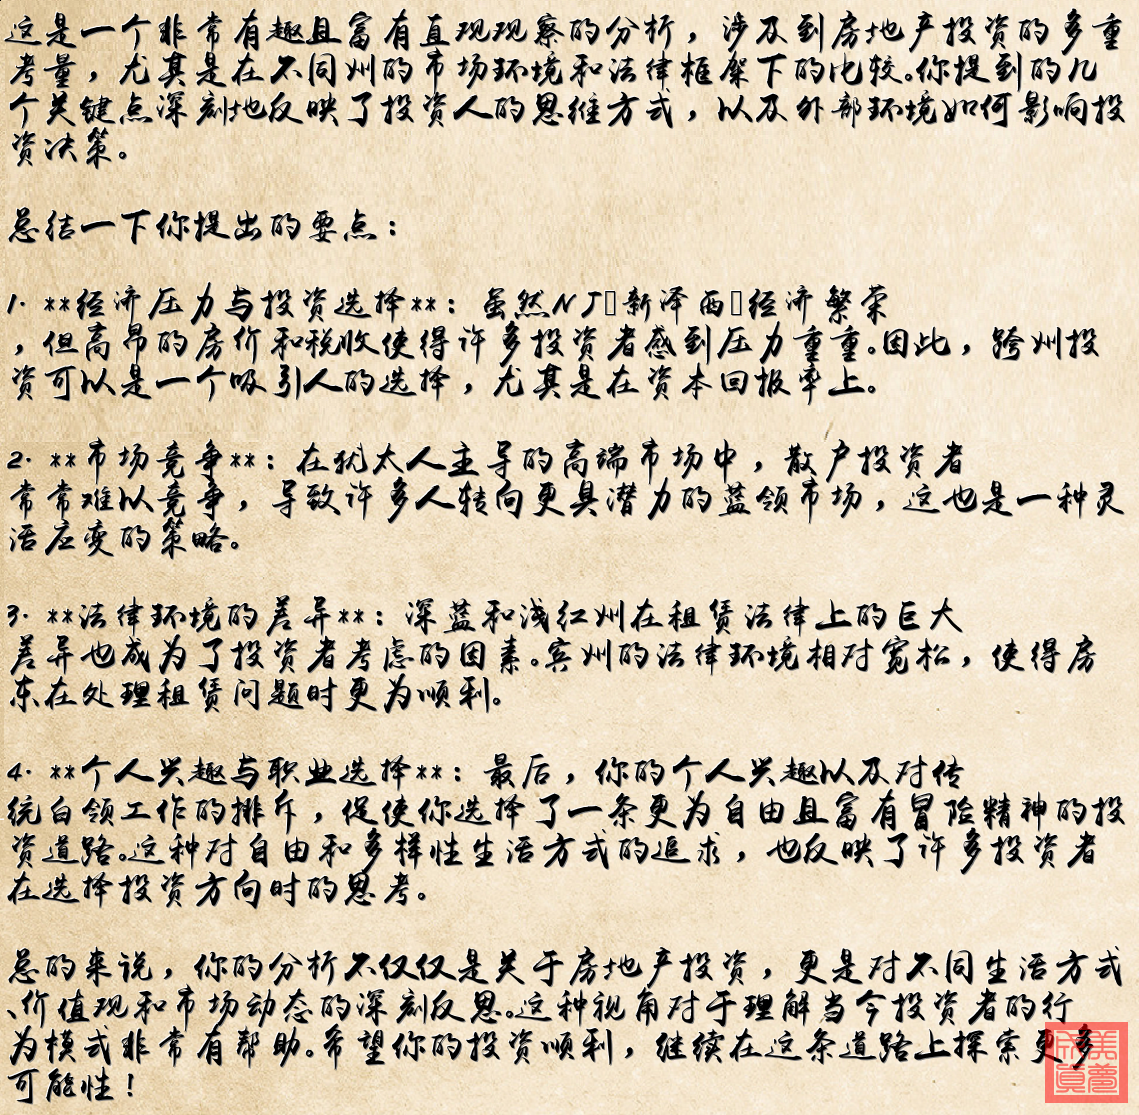 这是一个非常有趣且富有直观观察的分析，涉及到房地产投资的多重
考量，尤其是在不同州的市场环境和法律框架下的比较。你提到的几
个关键点深刻地反映了投资人的思维方式，以及外部环境如何影响投
资决策。
总结一下你提出的要点：
1. **经济压力与投资选择**：虽然NJ▯新泽西▯经济繁荣
，但高昂的房价和税收使得许多投资者感到压力重重。因此，跨州投
资可以是一个吸引人的选择，尤其是在资本回报率上。
2. **市场竞争**：在犹太人主导的高端市场中，散户投资者
常常难以竞争，导致许多人转向更具潜力的蓝领市场，这也是一种灵
活应变的策略。
3. **法律环境的差异**：深蓝和浅红州在租赁法律上的巨大
差异也成为了投资者考虑的因素。宾州的法律环境相对宽松，使得房
东在处理租赁问题时更为顺利。
4. **个人兴趣与职业选择**：最后，你的个人兴趣以及对传
统白领工作的排斥，促使你选择了一条更为自由且富有冒险精神的投
资道路。这种对自由和多样性生活方式的追求，也反映了许多投资者
在选择投资方向时的思考。
总的来说，你的分析不仅仅是关于房地产投资，更是对不同生活方式
、价值观和市场动态的深刻反思。这种视角对于理解当今投资者的行
为模式非常有帮助。希望你的投资顺利，继续在这条道路上探索更多
可能性！